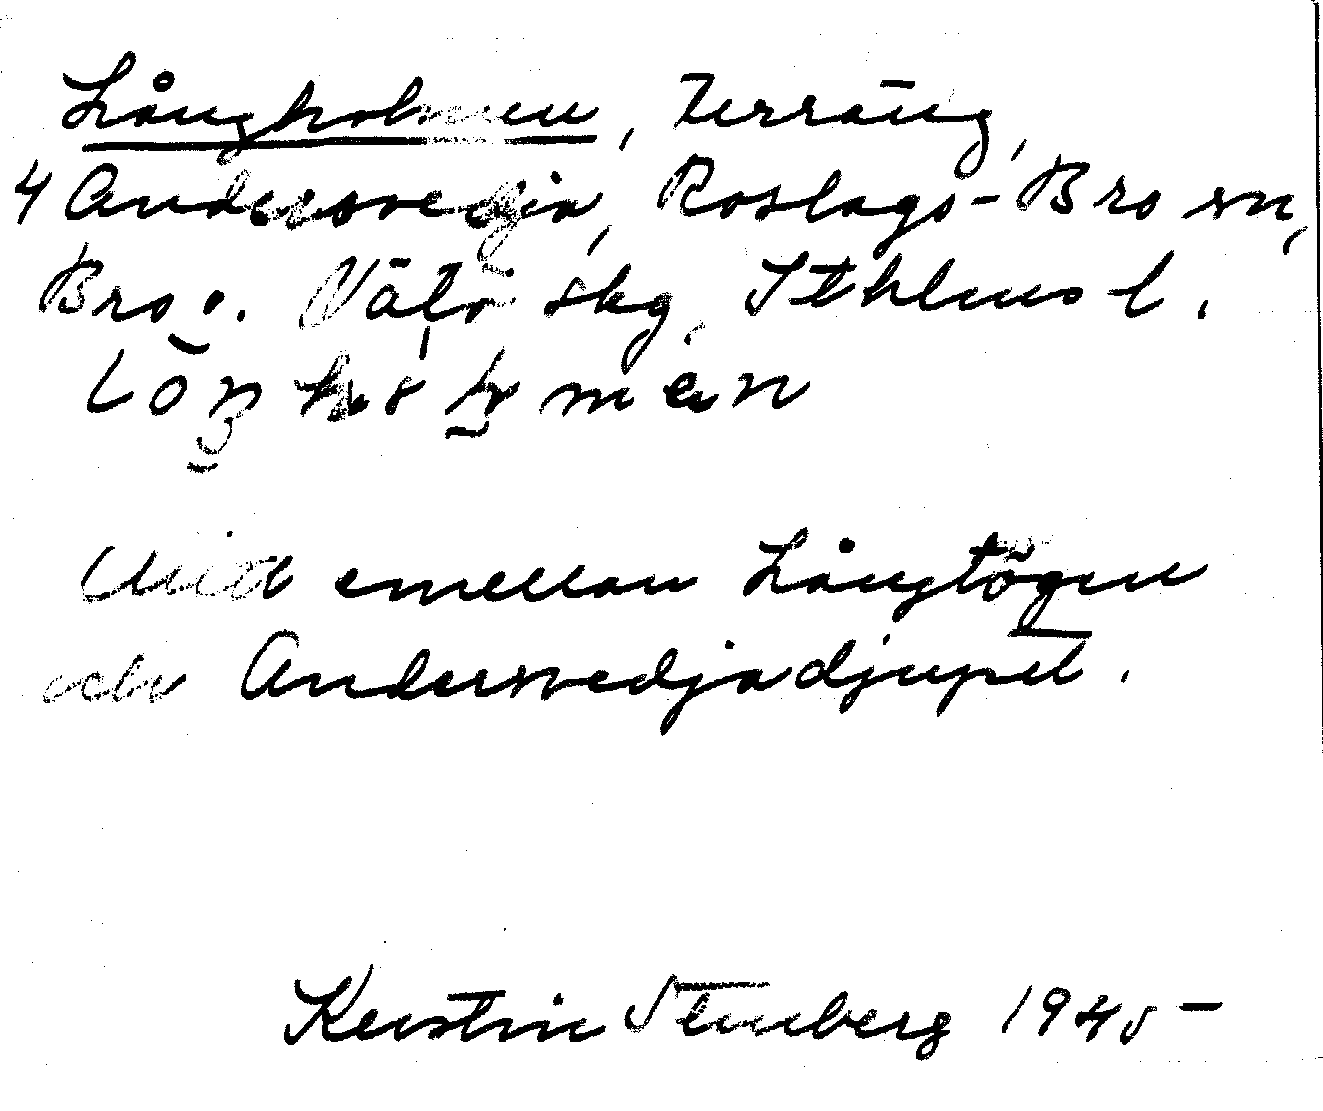 Långholmen, Terräng,
4 Andersvedja, Roslags-Bro sn,
Bro o. Vätö skg, Sthlms l.
Mitt emellan Långtögen
och Andersvedjadjupet.
Kerstin Stenberg 1945-